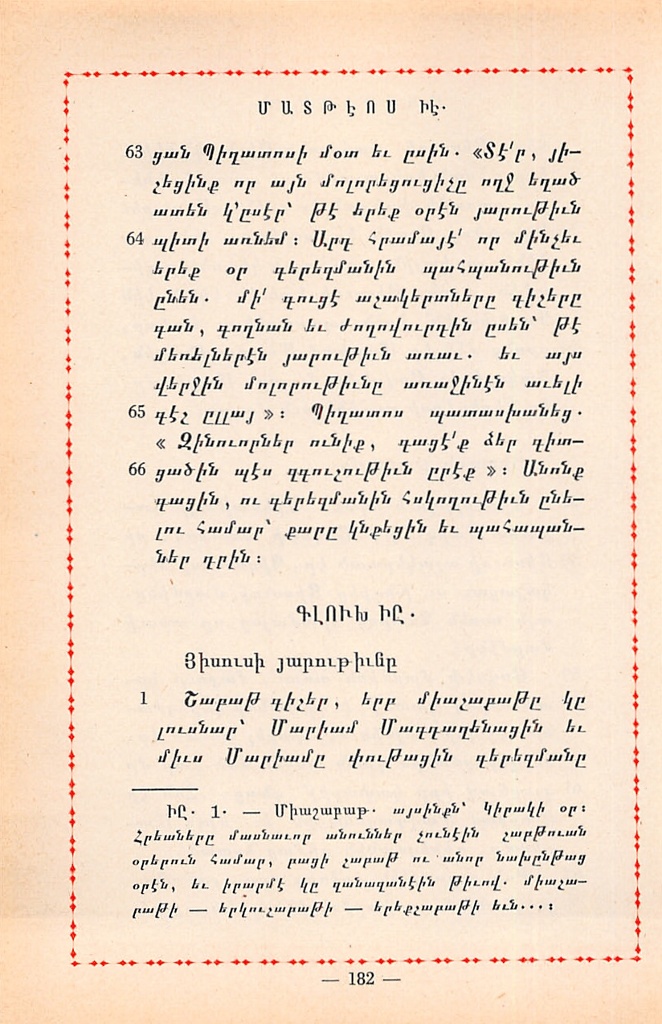 ՄԱՏԹԷՈՍ ԻԷ.
63 ցան Պիղատոսի մօտ եւ ըսին. «Տէ՛ր, յի—
շեցինք որ այն մոլորեցուցիչը ողջ եղած
ատեն կ՚ըսէր՝ թէ երեք օրէն յարութիւն
64 պիտի առնեմ։ Արդ հրամայէ՛ որ մինչեւ
երեք օր գերեզմանին պահպանութիւն
ընեն. մի՛ գուցէ աշակերտները գիշերը
գան, գողնան եւ ժողովուրդին ըսեն՝ թէ
մեռելներէն յարութիւն առաւ. եւ այս
վերջին մոլորութիւնը առաջինէն աւելի
65 գէշ ըլլայ»։ Պիղատոս պատասխանեց.
« Զինուորներ ունիք, գացէ՛ք ձեր գիտ—
66 ցածին պէս զգուշութիւն ըրէք »։ Անոնք
գացին, ու գերեզմանին հսկողութիւն ընե—
լու համար՝ քարը կնքեցին եւ պահապան—
ներ դրին։
ԳԼՈՒԽ ԻԸ.
Յիսուսի յարութիւնը
1 Շաբաթ գիշեր, երբ միաշաբաթը կը
լուսնար՝ Մարիամ Մագդաղենացին եւ
միւս Մարիամը փութացին գերեզմանը
ԻԸ. 1. — Միաշաբաթ. այսինքն՝ Կիրակի օր։
Հրեաները մասնաւոր անուններ չունէին շաբթուան
օրերուն համար, բացի շաբաթ ու անոր նախընթաց
օրէն, եւ իրարմէ կը զանազանէին թիւով. միաշա—
բաթի — երկուշաբաթի — երեքշաբաթի եւն...։
— 182 —